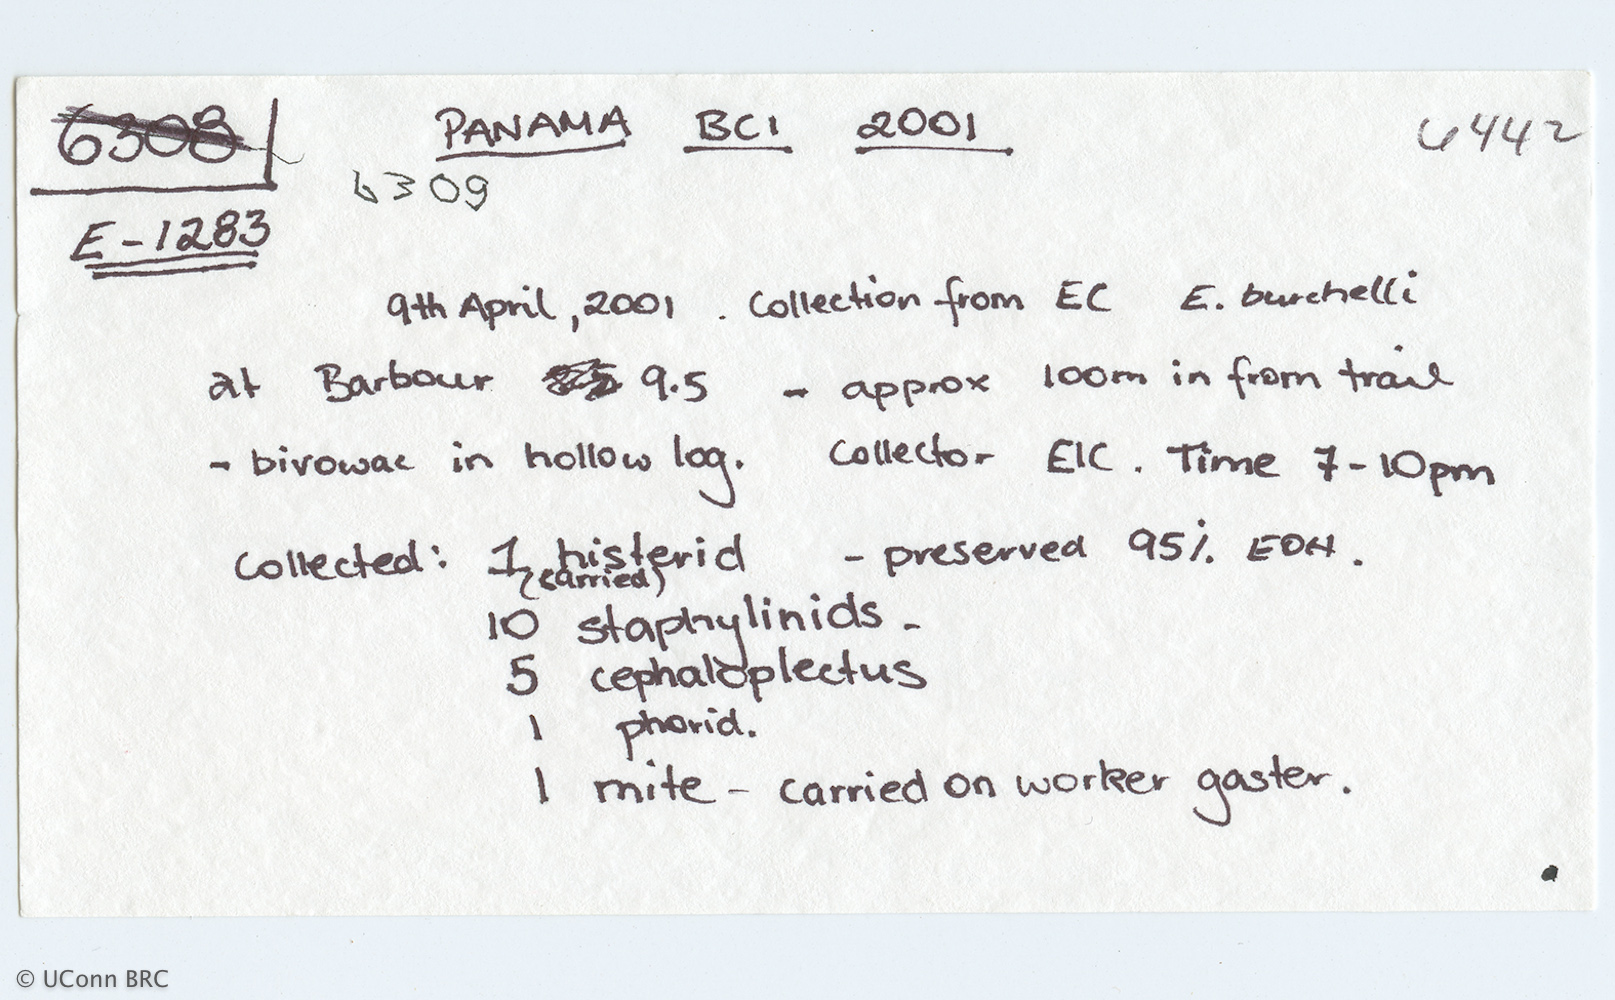 6308 PANAMA BCI 2001 6442
6309
E-1283
9th April, 2001. Collection from EC E. burchelli
at Barbour 9.5 - approx 100m in from trail
- bivowac in hollow log. Collector EIC. Time 7-10pm
Collected: 1 histerid - preserved 95% EOH.
(carried)
10 staphylinids -
5 cephaloplectus
1 phorid.
1 mite - carried on worker gaster.
© UConn BRC